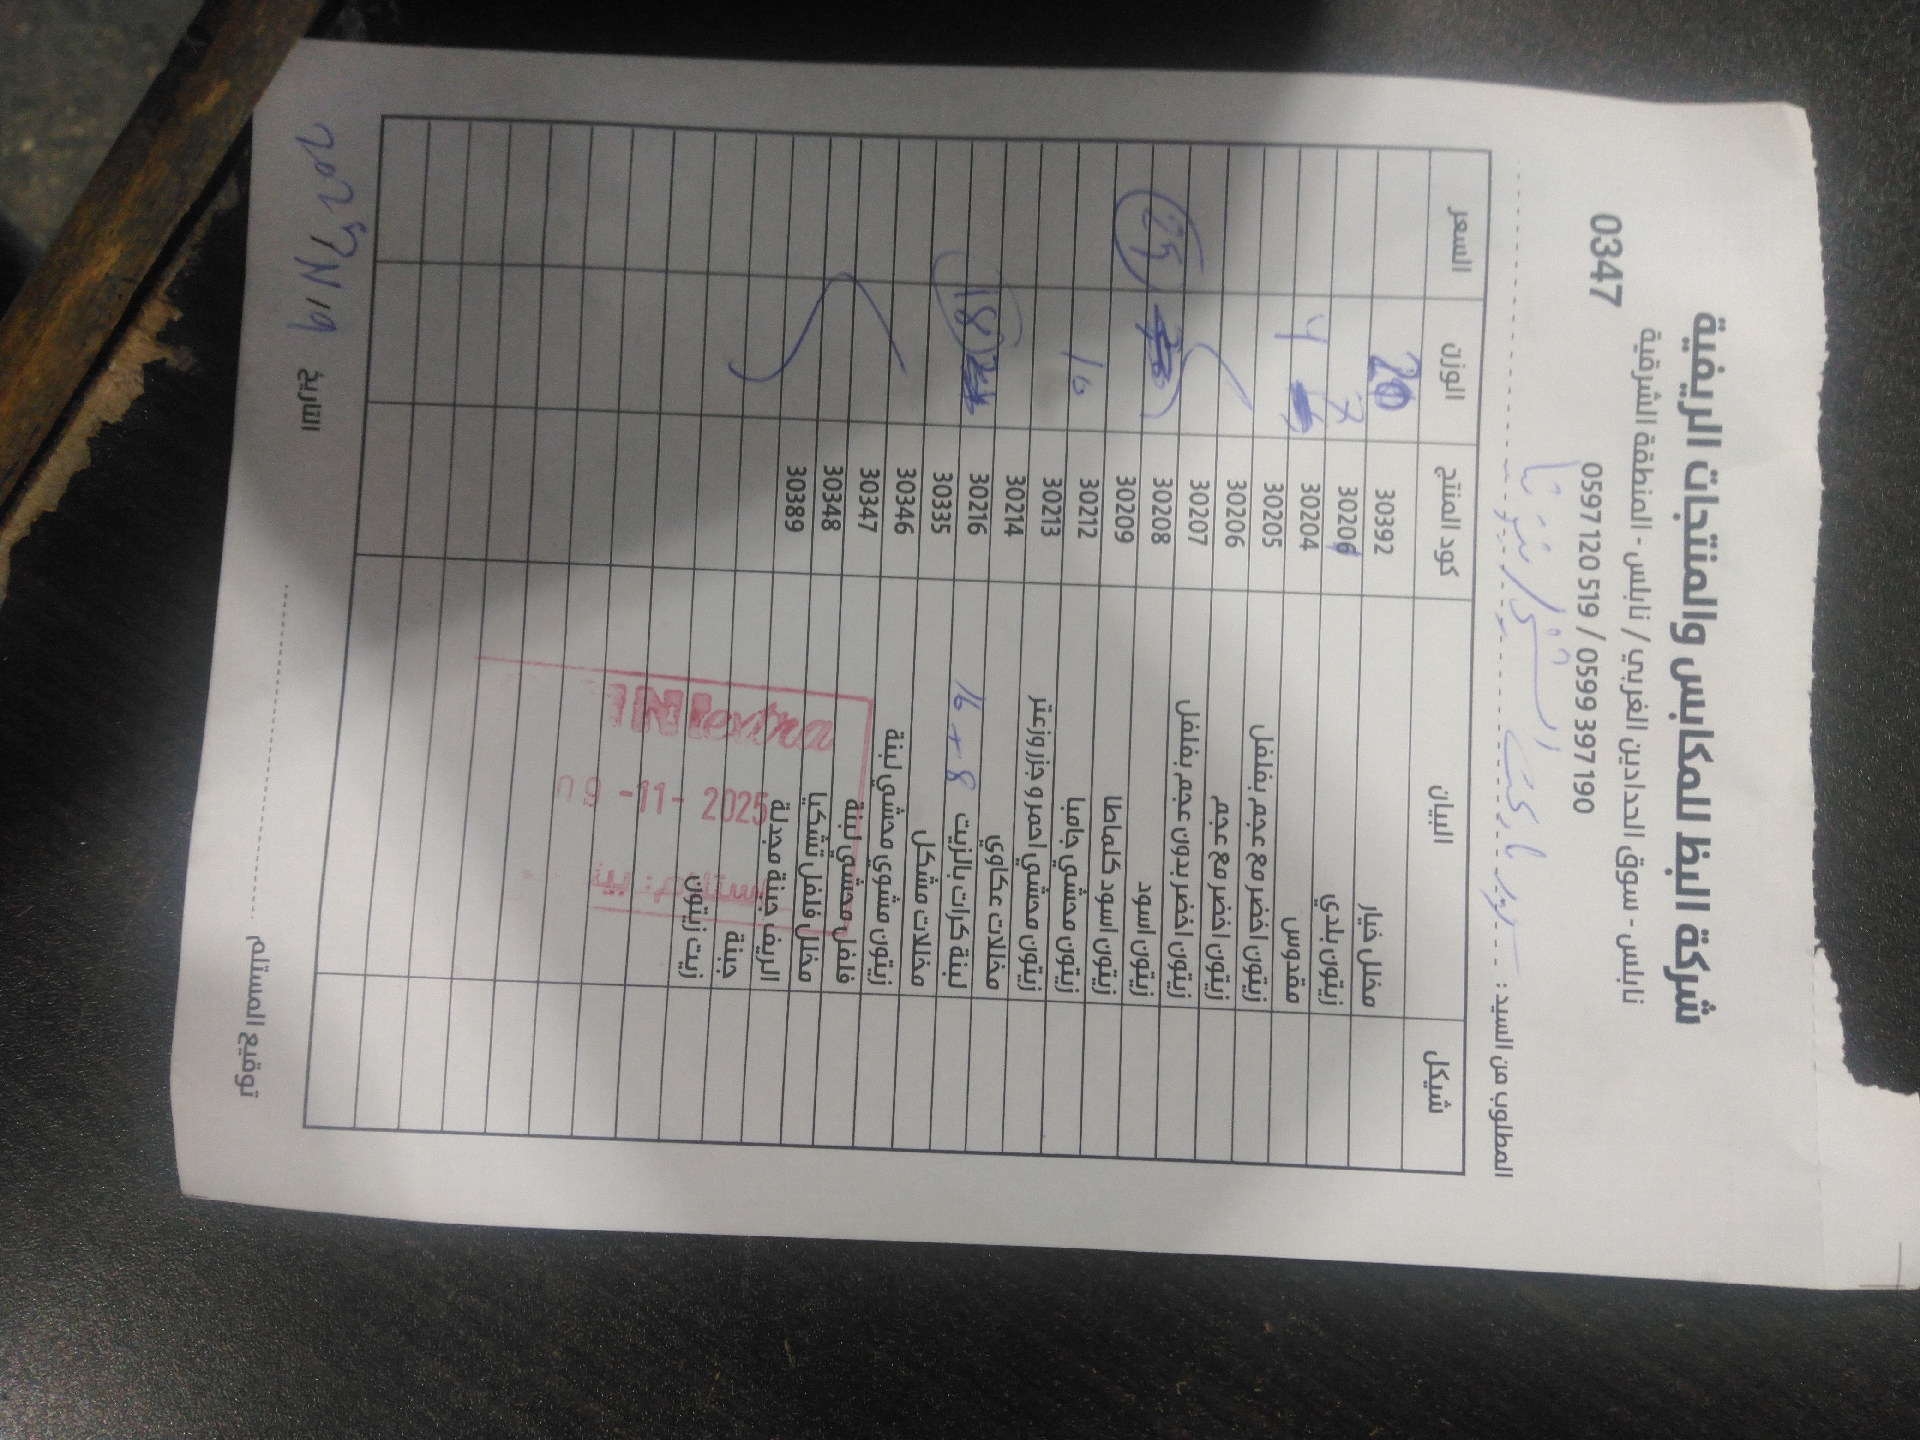 شركة البظ للمكابس والمنتجات الريفية
نابلس - سوق الحدادين الغربي / نابلس - المنطقة الشرقية
0597 120 519 / 0599 397 190
0347
المطلوب من السيد :
شيكل البيان كود المنتج الوزن السعر
مخلل خيار 30392 20
زيتون بلدي 30206 7
مقدوس 30204 4
زيتون اخضر مع عجم بفلفل 30205
زيتون اخضر مع عجم 30206
زيتون اخضر بدون عجم بفلفل 30207
زيتون اسود 30208
زيتون اسود كلماطا 30209
زيتون محشي جامبا 30212 16
زيتون محشي احمر و جزر وزعتر 30213
مخلالات عكاوي 30214
لبنة كرات بالزيت 16 + 8 30216 18
مخلالات مشكل 30335
زيتون مشوي محشي لبنة 30346
فلفل محشي لبنة 30347
مخلل فلفل تشكيا 30348
الريف جبنة مجدلة 30389
جبنة
زيت زيتون
extra
09 -11- 2025
التاريخ 9/11/2025
توقيع المستلم